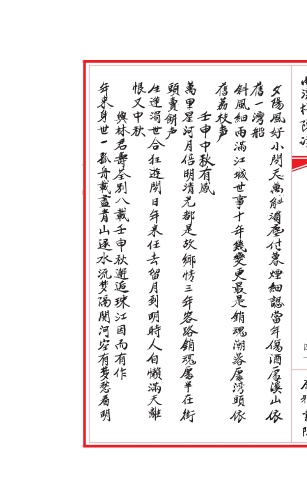 夕陽風好小開天萬斛酒塵付暮煙細認當年偈酒處溪山依
舊一灣船
斜風細雨滿江城世事十年幾變更最是銷魂潮落處灣頭依
舊荔枝聲
壬申中秋有感
萬里星河月倍明清光都是故鄉情三年客路銷魂慶半在街
頭賣餅聲
佳運濁世合狂遊閒日年來任去留月到明時人自懶滿天離
恨又中秋
與林君壽荃別八載壬申秋邂逅珠江因而有作
年來身世一孤舟載盡青山逐水流夢隔關河空有夢愁看明